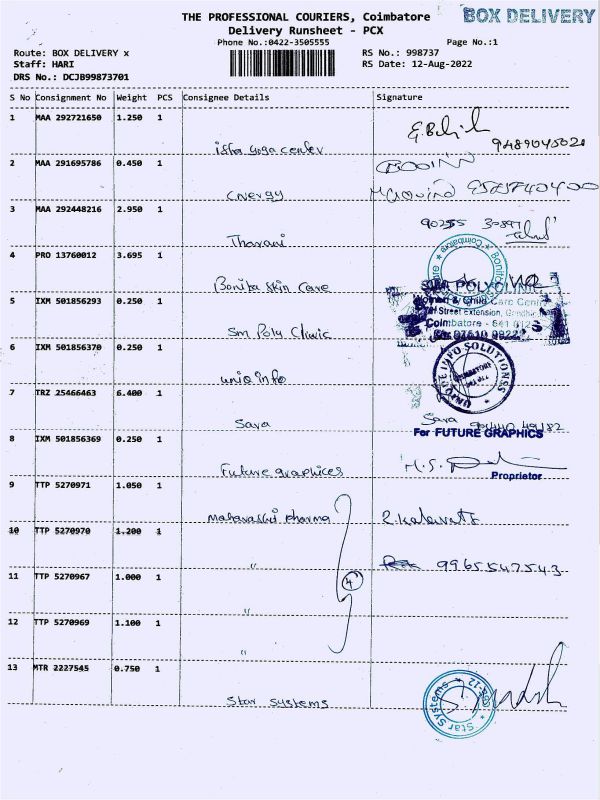 BOX DELIVERY
THE PROFESSIONAL COURIERS, Coimbatore
Delivery Runsheet - PCX
Phone No.:0422-3505555
Page No.:1
Route: BOX DELIVERY x
Staff: HARI
DRS No.: DCJB99873701
RS No.: 998737
RS Date: 12-Aug-2022
S No Consignment No Weight PCS Consignee Details Signature
1 MAA 292721650 1.250 1
isha yoga center 9489045021
2 MAA 291695786 0.450 1
Cnergy
3 MAA 292448216 2.950 1
Tharani
4 PRO 13760012 3.695 1
Bonita Skin Care
5 IXM 501856293 0.250 1
Sm Poly Clinic
6 IXM 501856370 0.250 1
uniq info
7 TRZ 25466463 6.400 1
Sara Sara
8 IXM 501856369 0.250 1 For FUTURE GRAPHICS
Future graphices
Proprietor
9 TTP 5270971 1.050 1
pharma
10 TTP 5270970 1.200 1
" 9965547543
11 TTP 5270967 1.000 1 4
"
12 TTP 5270969 1.100 1
"
13 MTR 2227545 0.750 1
Star Systems
Bonita
Coimbatore
POLYCLINIC
Women & Child Care Centre
Street Extension,
Coimbatore - 641 012
UNIQUE INFO SOLUTIONSS
COIMBATORE
Star Systems